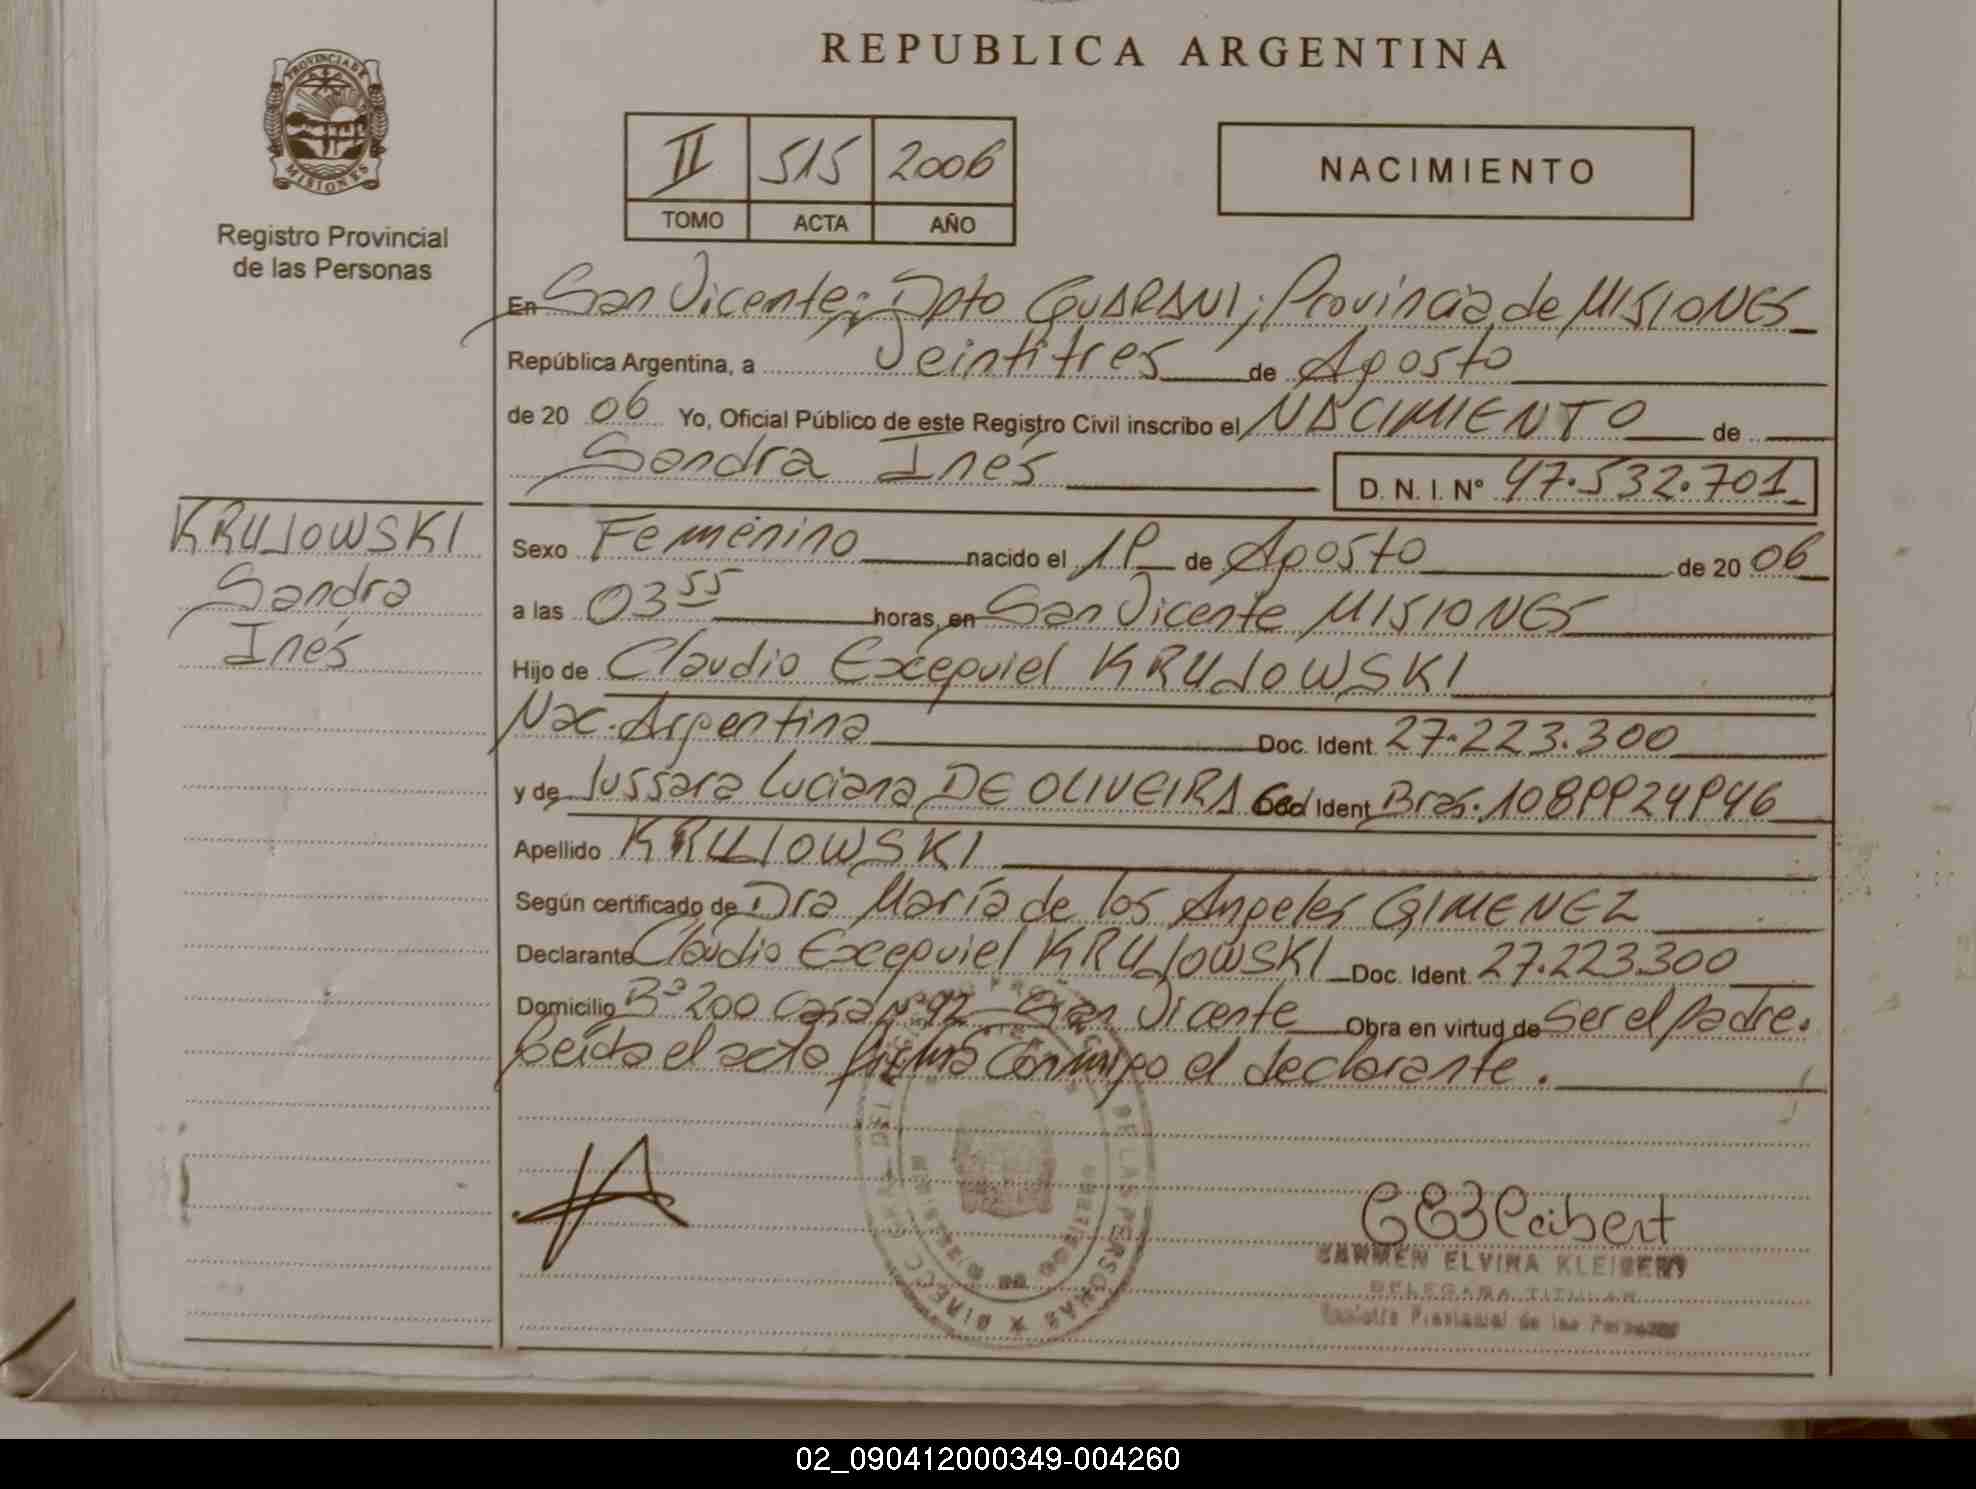 REPUBLICA ARGENTINA
PROVINCIA DE
MISIONES
Registro Provincial
de las Personas
II 515 2006
TOMO ACTA AÑO
NACIMIENTO
En San Vicente; Dpto GUARANI; Provincia de MISIONES
República Argentina, a Veintitres de Agosto
de 20 06 Yo, Oficial Público de este Registro Civil inscribo el NACIMIENTO de
Sandra Inés D. N. I. Nº 47.532.701
KRUJOWSKI
Sandra
Inés
Sexo Femenino nacido el 19 de Agosto de 20 06
a las 03 55 horas, en San Vicente MISIONES
Hijo de Claudio Exequiel KRUJOWSKI
Nac. Argentina Doc. Ident. 27.223.300
y de Jussara Luciana DE OLIVEIRA Ced Ident Bras. 10899249946
Apellido KRUJOWSKI
Según certificado de Dra María de los Angeles GIMENEZ
Declarante Claudio Exequiel KRUJOWSKI Doc. Ident. 27.223.300
Domicilio Bº 200 Casa Nº 92 San Vicente Obra en virtud de Ser el padre.
Leída el acta firma conmigo el declarante.
DE LAS PERSONAS
CARMEN ELVIRA KLEIBERT
DELEGADA TITULAR
Registro Provincial de las Personas
02_090412000349-004260